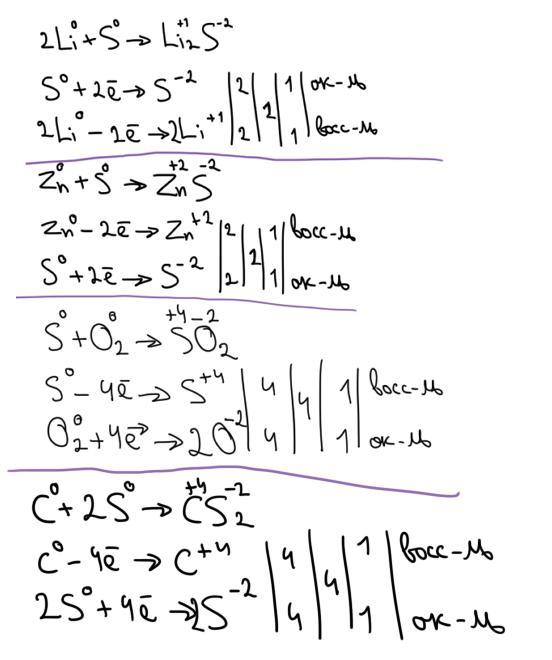 2Li⁰ + S⁰ → Li₂⁺¹S⁻²
S⁰ + 2ē → S⁻² | 2 | 2 | 1 | ок-ль
2Li⁰ - 2ē → 2Li⁺¹ | 2 | | 1 | восс-ль
Zn⁰ + S⁰ → Zn⁺²S⁻²
Zn⁰ - 2ē → Zn⁺² | 2 | 2 | 1 | восс-ль
S⁰ + 2ē → S⁻² | 2 | | 1 | ок-ль
S⁰ + O₂⁰ → S⁺⁴O₂⁻²
S⁰ - 4ē → S⁺⁴ | 4 | 4 | 1 | восс-ль
O₂⁰ + 4ē → 2O⁻² | 4 | | 1 | ок-ль
C⁰ + 2S⁰ → C⁺⁴S₂⁻²
C⁰ - 4ē → C⁺⁴ | 4 | 4 | 1 | восс-ль
2S⁰ + 4ē → 2S⁻² | 4 | | 1 | ок-ль